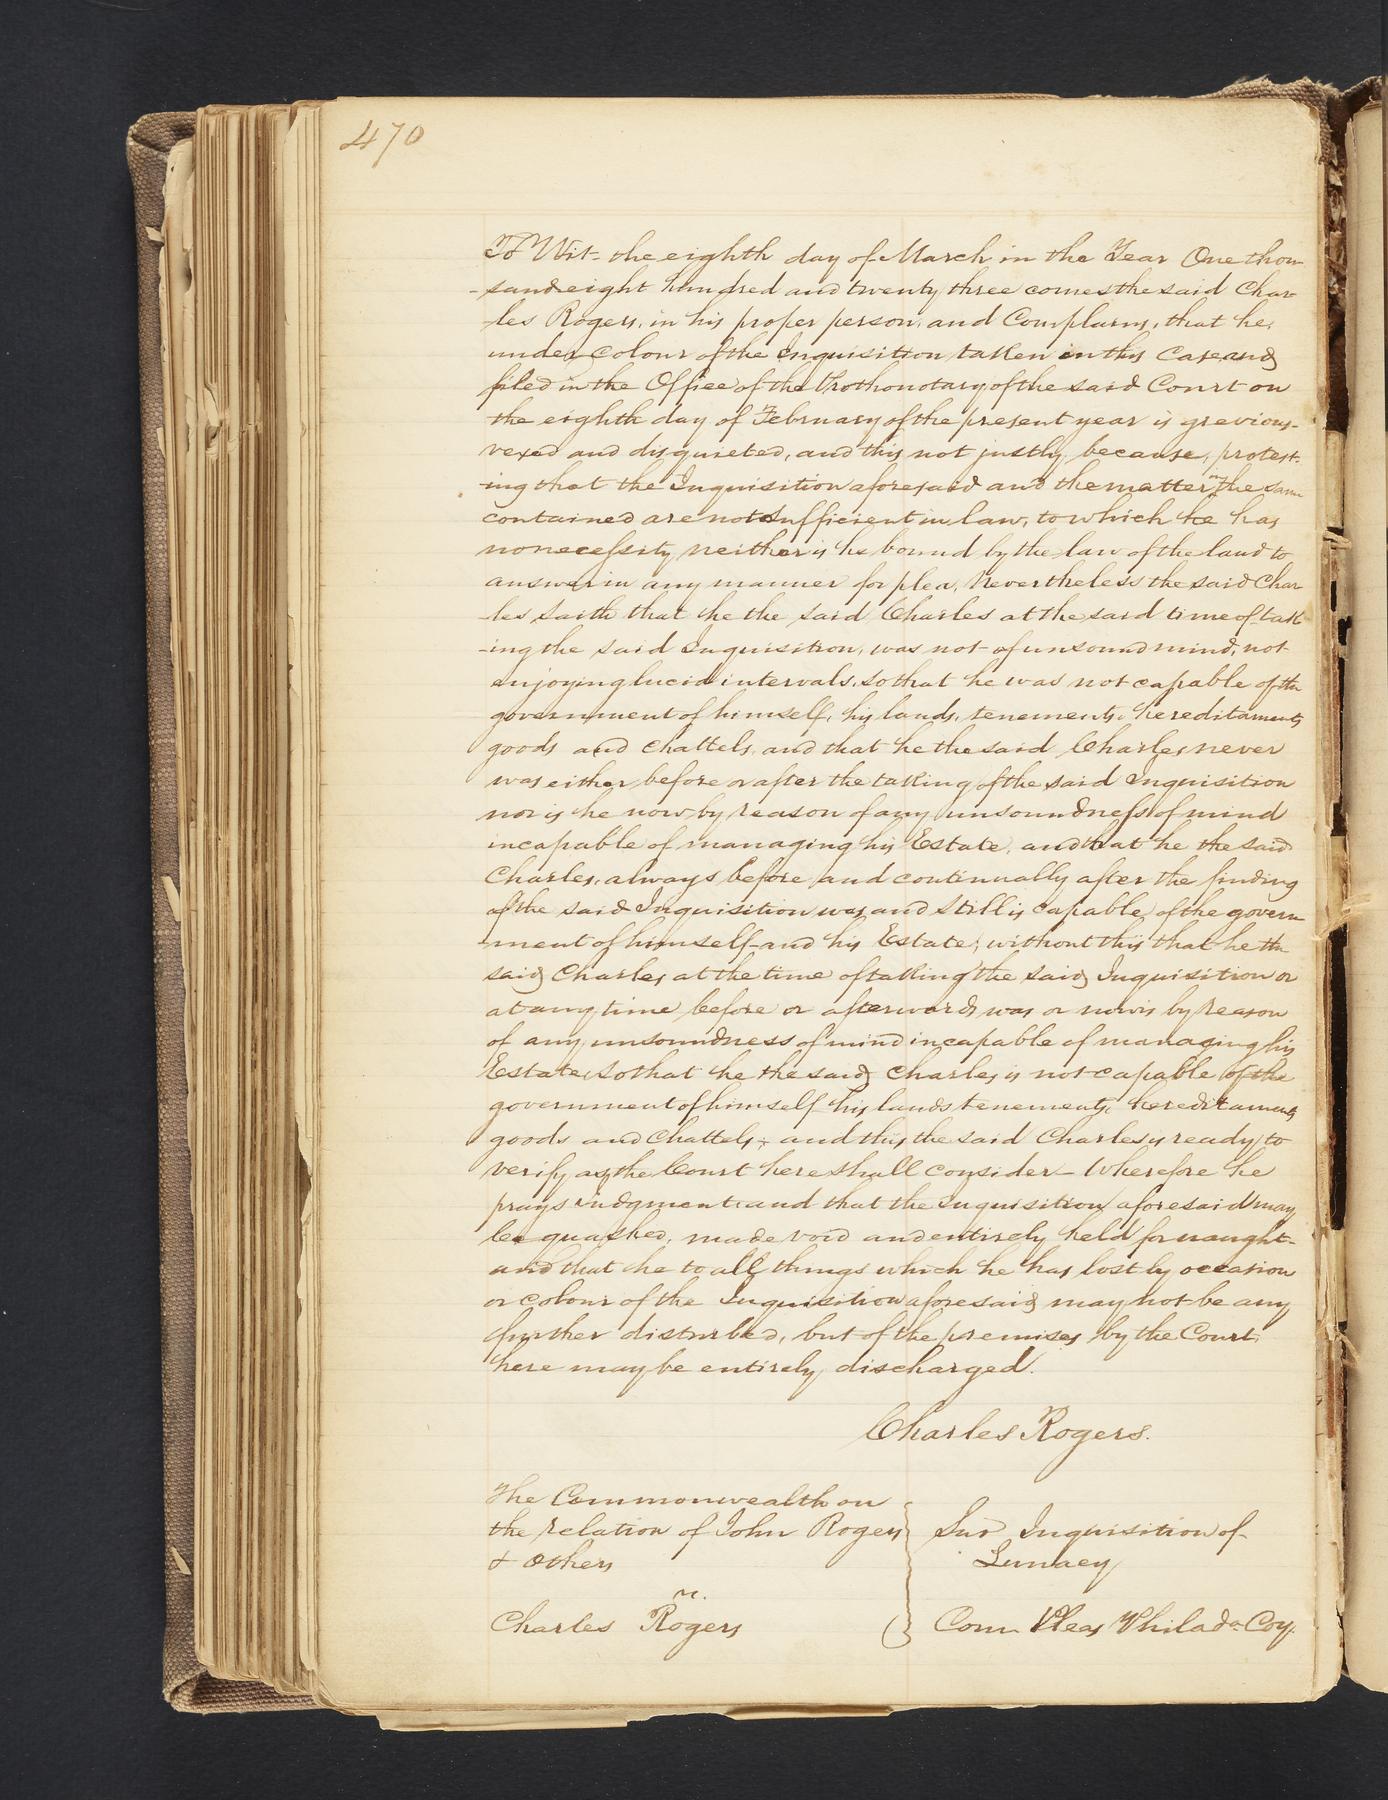 470
To Wit- the eighth day of March in the Year One thou-
-sand eight hundred and twenty three comes the said Char-
-les Rogers, in his proper person, and Complains, that he,
under Colour of the Inquisition taken in this Case and
filed in the Office of the Prothonotary of the said Court on
the eighth day of February of the present year is grevious-
vexed and disquieted, and this not justly, because, protest-
-ing that the Inquisition aforesaid and the matter in the same
contained are not sufficient in law, to which he has
no necessity neither is he bound by the law of the land to
answer in any manner for plea, Nevertheless the said Char
-les Saith that he the said Charles at the said time of tak
-ing the said Inquisition, was not of unsound mind, not
enjoying lucid intervals, so that he was not capable of the
government of himself, his lands, tenements, hereditaments
goods and chattels, and that he the said Charles never
was either before or after the taking of the said Inquisition
nor is he now by reason of any unsoundness of mind
incapable of managing his Estate, and that he the said
Charles, always before and continually after the finding
of the said Inquisition was and still is capable of the govern-
-ment of himself and his Estate; without this that he the
said Charles at the time of taking the said Inquisition or
at any time before or afterwards was or now is by reason
of any unsoundness of mind incapable of managing his
Estate so that he the said Charles is not capable of the
government of himself his lands tenements, hereditaments
goods and Chattels; and this the said Charles is ready to
verify as the Court here shall consider- Wherefore he
prays judgment and that the inquisition aforesaid may
be quashed, made void and entirely held for naught-
and that he to all things which he has lost by occasion
or colour of the Inquisition aforesaid may not be any
further disturbed, but of the premises by the Court.
here may be entirely discharged.
Charles Rogers.
The Commonwealth on
the relation of John Rogers
& others
vs.
Charles Rogers
Sur Inquisition of
Lunacy
Com Pleas Philada Coy.